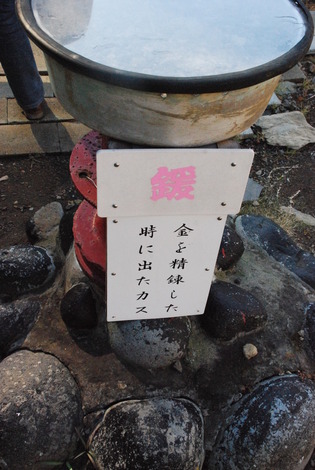 鍰
金を精錬した
時に出たカス